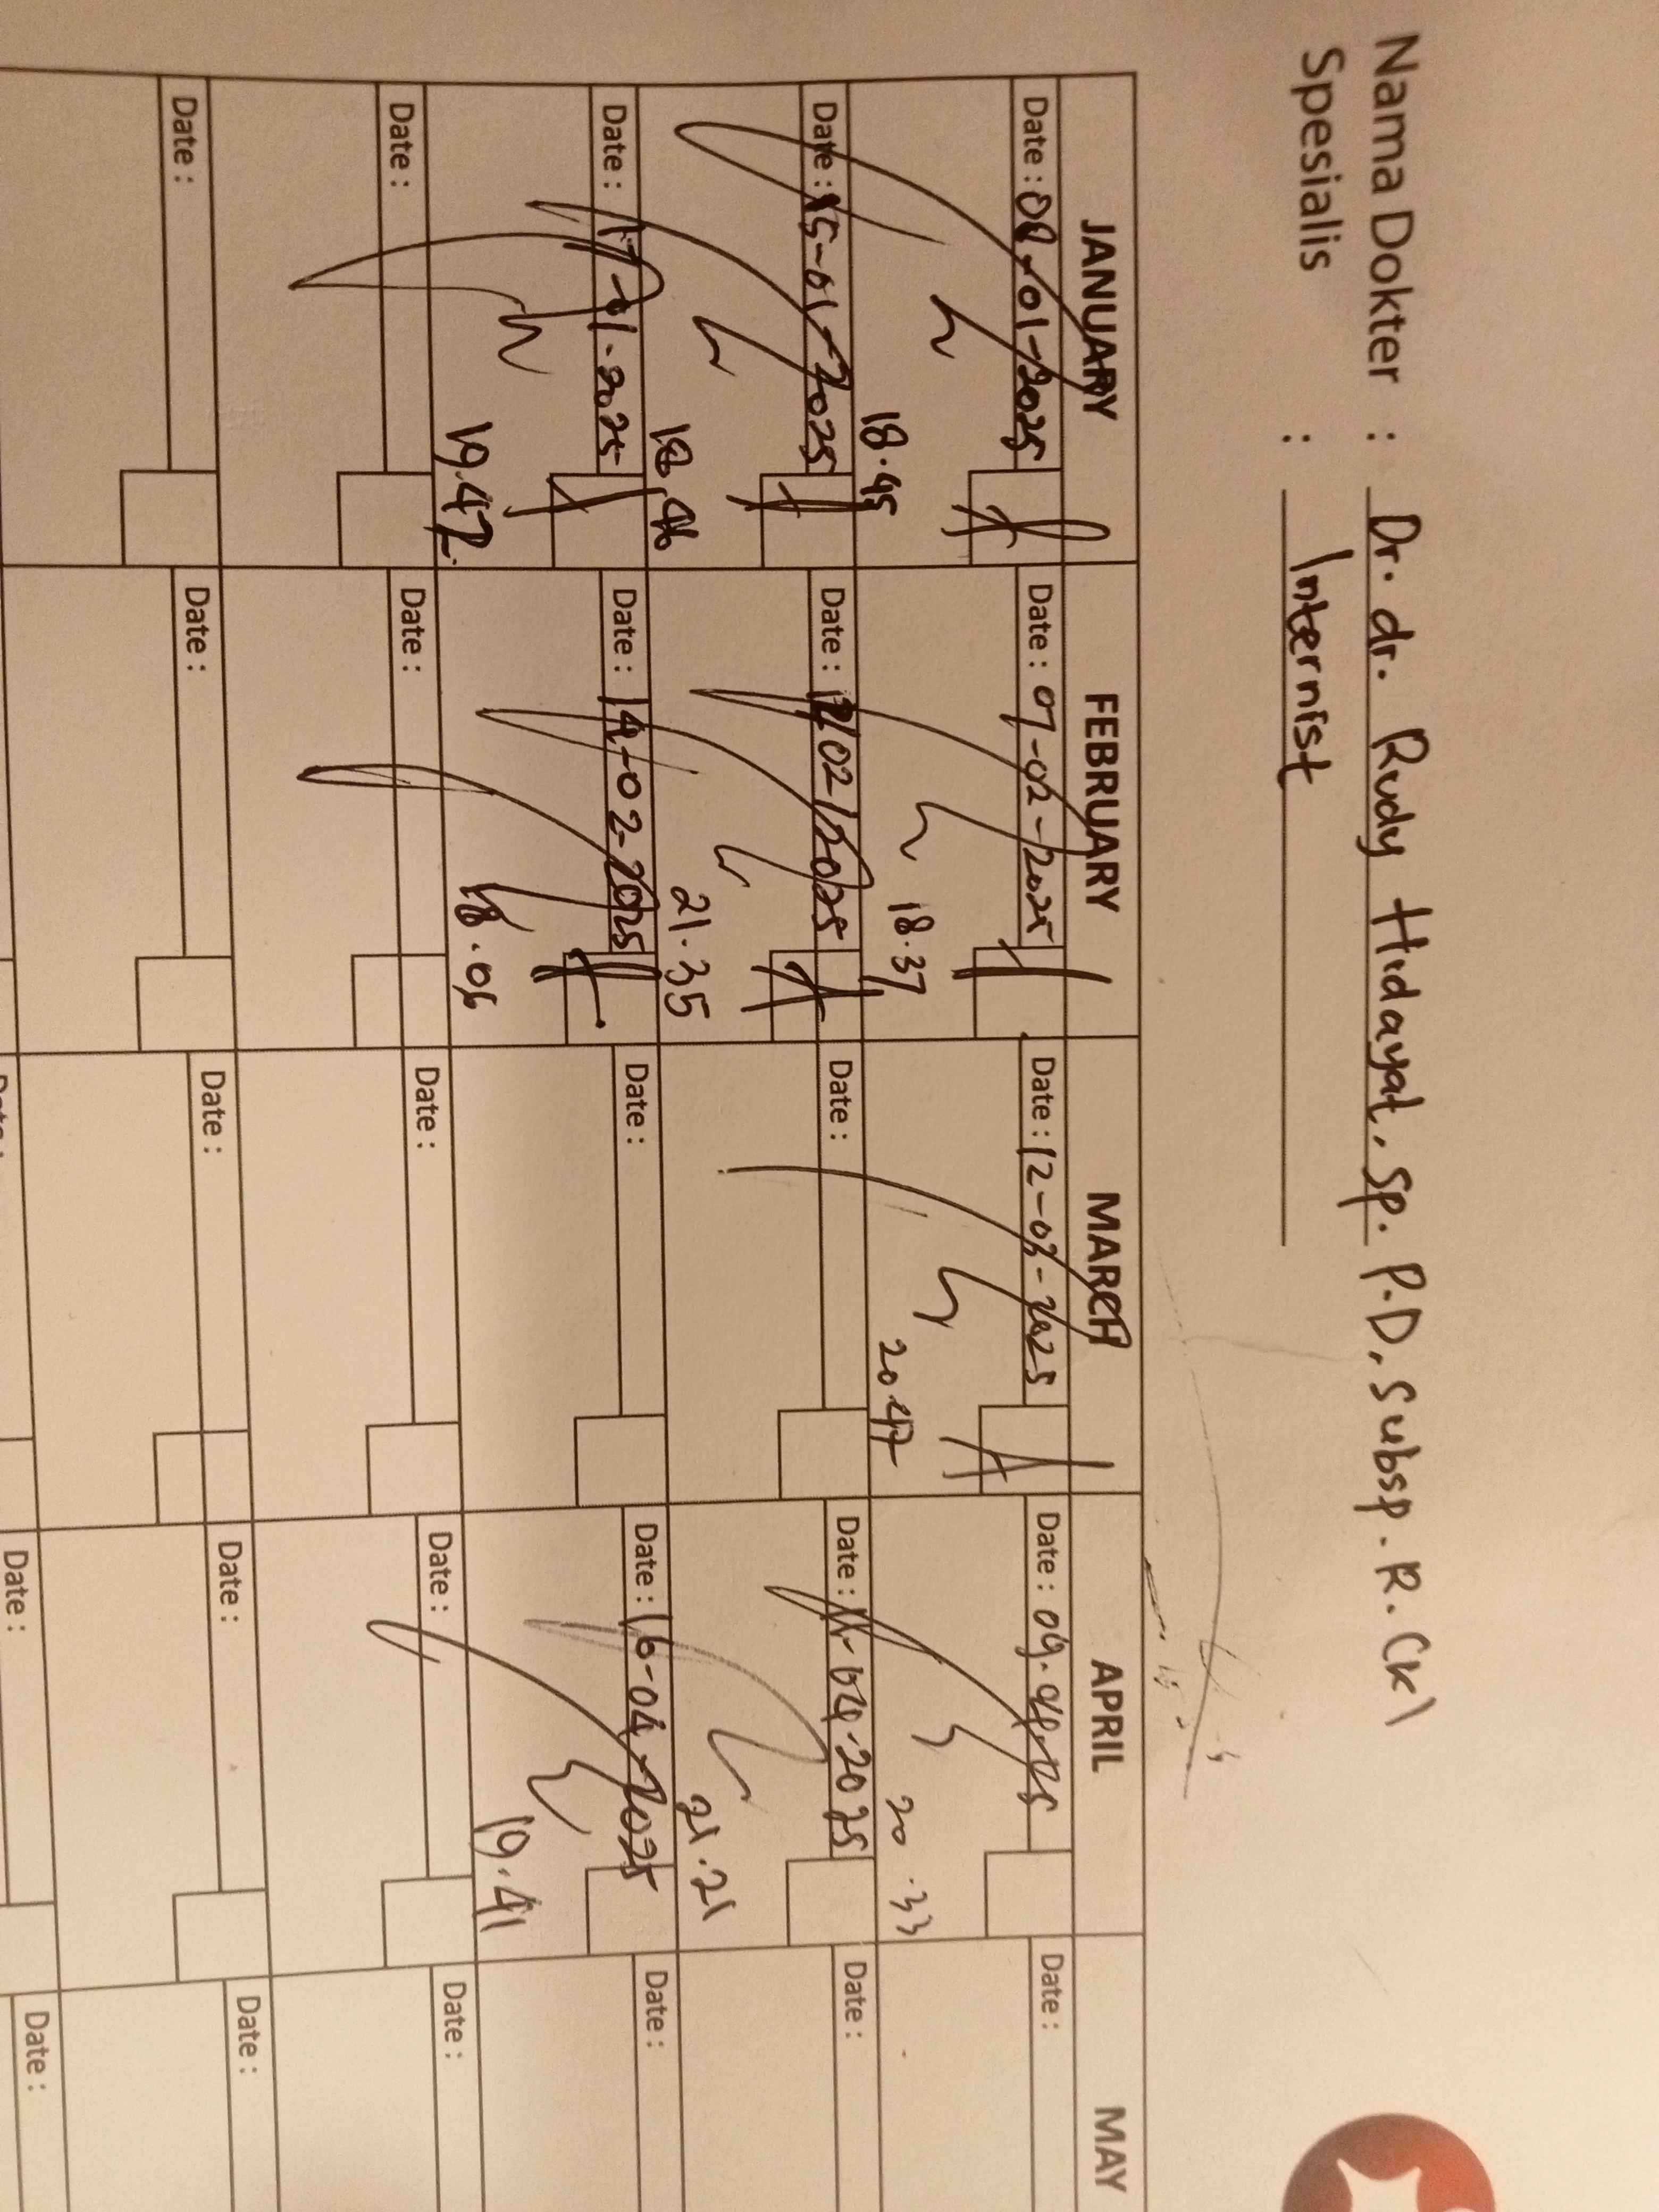 Nama Dokter : Dr. dr. Rudy Hidayat, Sp. P.D, Subsp. R. (K)
Spesialis : Internist
JANUARY FEBRUARY MARCH APRIL MAY
Date : 08-01-2025 Date : 07-02-2025 Date : 12-03-2025 Date : 09.04.25 Date :
18.45 18.37 20.47 20.33
Date : 15-01-2025 Date : 12/02/2025 Date : Date : 04.2025 Date :
18.46 21.35 21.21
Date : 17-01.2025 Date : 14-02-2025 Date : Date : 16-04-2025 Date :
19.42 18.06 19.41
Date : Date : Date : Date : Date :
Date : Date : Date : Date : Date :
Date : Date :